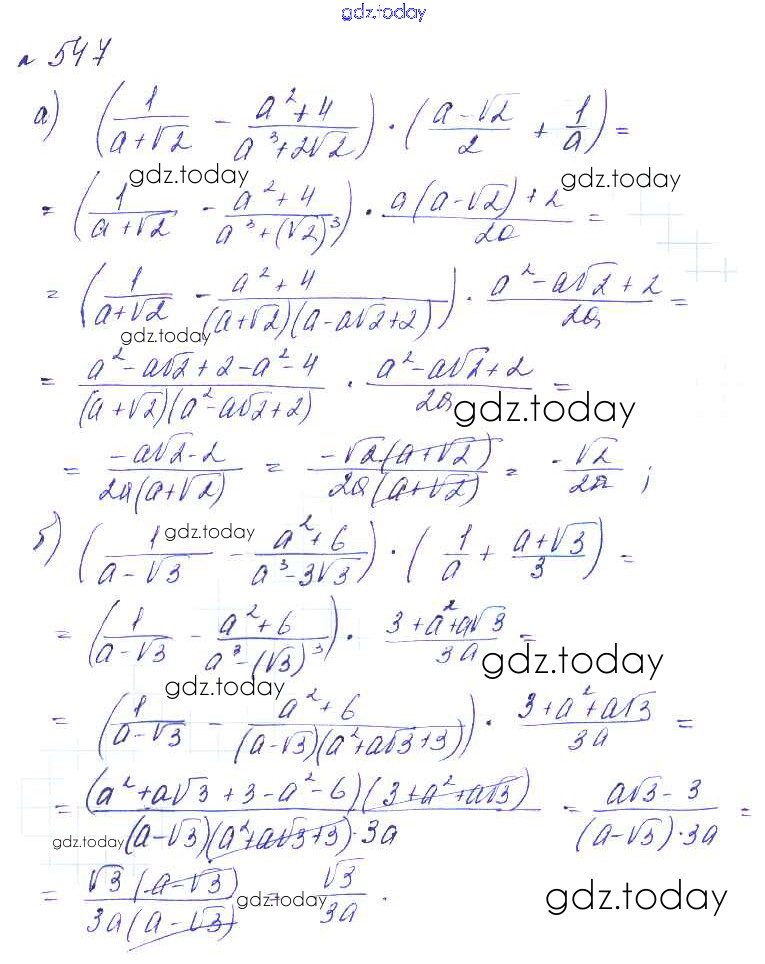 gdz.today
№547
а) (1/(a+√2) - (a²+4)/(a³+2√2)) · ((a-√2)/2 + 1/a) =
gdz.today gdz.today
= (1/(a+√2) - (a²+4)/(a³+(√2)³)) · (a(a-√2)+2)/2a =
= (1/(a+√2) - (a²+4)/((a+√2)(a-a√2+2))) · (a²-a√2+2)/2a =
gdz.today
= (a²-a√2+2-a²-4)/((a+√2)(a²-a√2+2)) · (a²-a√2+2)/2a =
gdz.today
= (-a√2-2)/(2a(a+√2)) = (-√2(a+√2))/(2a(a+√2)) = -√2/2a ;
gdz.today
б) (1/(a-√3) - (a²+6)/(a³-3√3)) · (1/a + (a+√3)/3) =
= (1/(a-√3) - (a²+6)/(a³-(√3)³)) · (3+a²+a√3)/3a =
gdz.today gdz.today
= (1/(a-√3) - (a²+6)/((a-√3)(a²+a√3+3))) · (3+a²+a√3)/3a =
= ((a²+a√3+3-a²-6)(3+a²+a√3))/((a-√3)(a²+a√3+3)·3a) = (a√3-3)/((a-√3)·3a) =
gdz.today
= (√3(a-√3))/(3a(a-√3)) = √3/3a .
gdz.today gdz.today